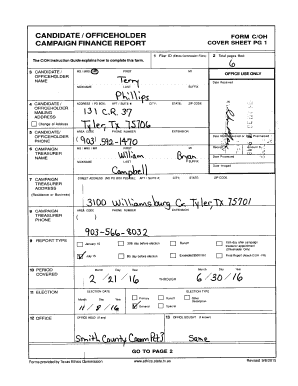 CANDIDATE / OFFICEHOLDER
CAMPAIGN FINANCE REPORT
FORM C/OH
COVER SHEET PG 1
The C/OH Instruction Guide explains how to complete this form.
1 Filer ID (Ethics Commission Filers)
2 Total pages filed:
6
3 CANDIDATE /
OFFICEHOLDER
NAME
MS / MRS / MR
FIRST
MI
Terry
NICKNAME
LAST
SUFFIX
Phillips
OFFICE USE ONLY
Date Received
4 CANDIDATE /
OFFICEHOLDER
MAILING
ADDRESS
Change of Address
ADDRESS / PO BOX;
APT / SUITE #;
CITY;
STATE;
ZIP CODE
131 CR. 37
Tyler, Tx 75706
5 CANDIDATE/
OFFICEHOLDER
PHONE
AREA CODE
PHONE NUMBER
EXTENSION
(903) 592-1470
Date Hand-delivered or Date Postmarked
6 CAMPAIGN
TREASURER
NAME
MS / MRS / MR
FIRST
MI
William
Brian
NICKNAME
LAST
SUFFIX
Campbell
Date Processed
Date Imaged
7 CAMPAIGN
TREASURER
ADDRESS
(Residence or Business)
STREET ADDRESS (NO PO BOX PLEASE);
APT / SUITE #;
CITY;
STATE;
ZIP CODE
3100 Williamsburg Ce Tyler, TX 75701
8 CAMPAIGN
TREASURER
PHONE
AREA CODE
PHONE NUMBER
EXTENSION
903-566-8032
9 REPORT TYPE
January 15
30th day before election
Runoff
15th day after campaign
treasurer appointment
(Officeholder Only)
July 15
8th day before election
Exceeded $500 limit
Final Report (Attach C/OH - FR)
10 PERIOD
COVERED
Month
Day
Year
2 / 21 / 16
THROUGH
Month
Day
Year
6 / 30 / 16
11 ELECTION
ELECTION DATE
Month
Day
Year
11 / 8 / 16
ELECTION TYPE
Primary
Runoff
Other
Description
General
Special
12 OFFICE
OFFICE HELD (if any)
Smith County Comm Pct 3
13 OFFICE SOUGHT (if known)
Same
GO TO PAGE 2
Forms provided by Texas Ethics Commission
www.ethics.state.tx.us
Revised 9/8/2015